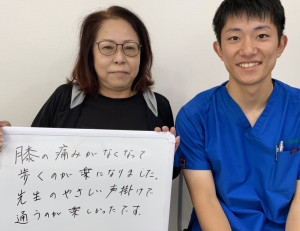 膝の痛みがなくなって
歩くのが楽になりました。
先生のやさしい声掛けで
通うのが楽しかったです。